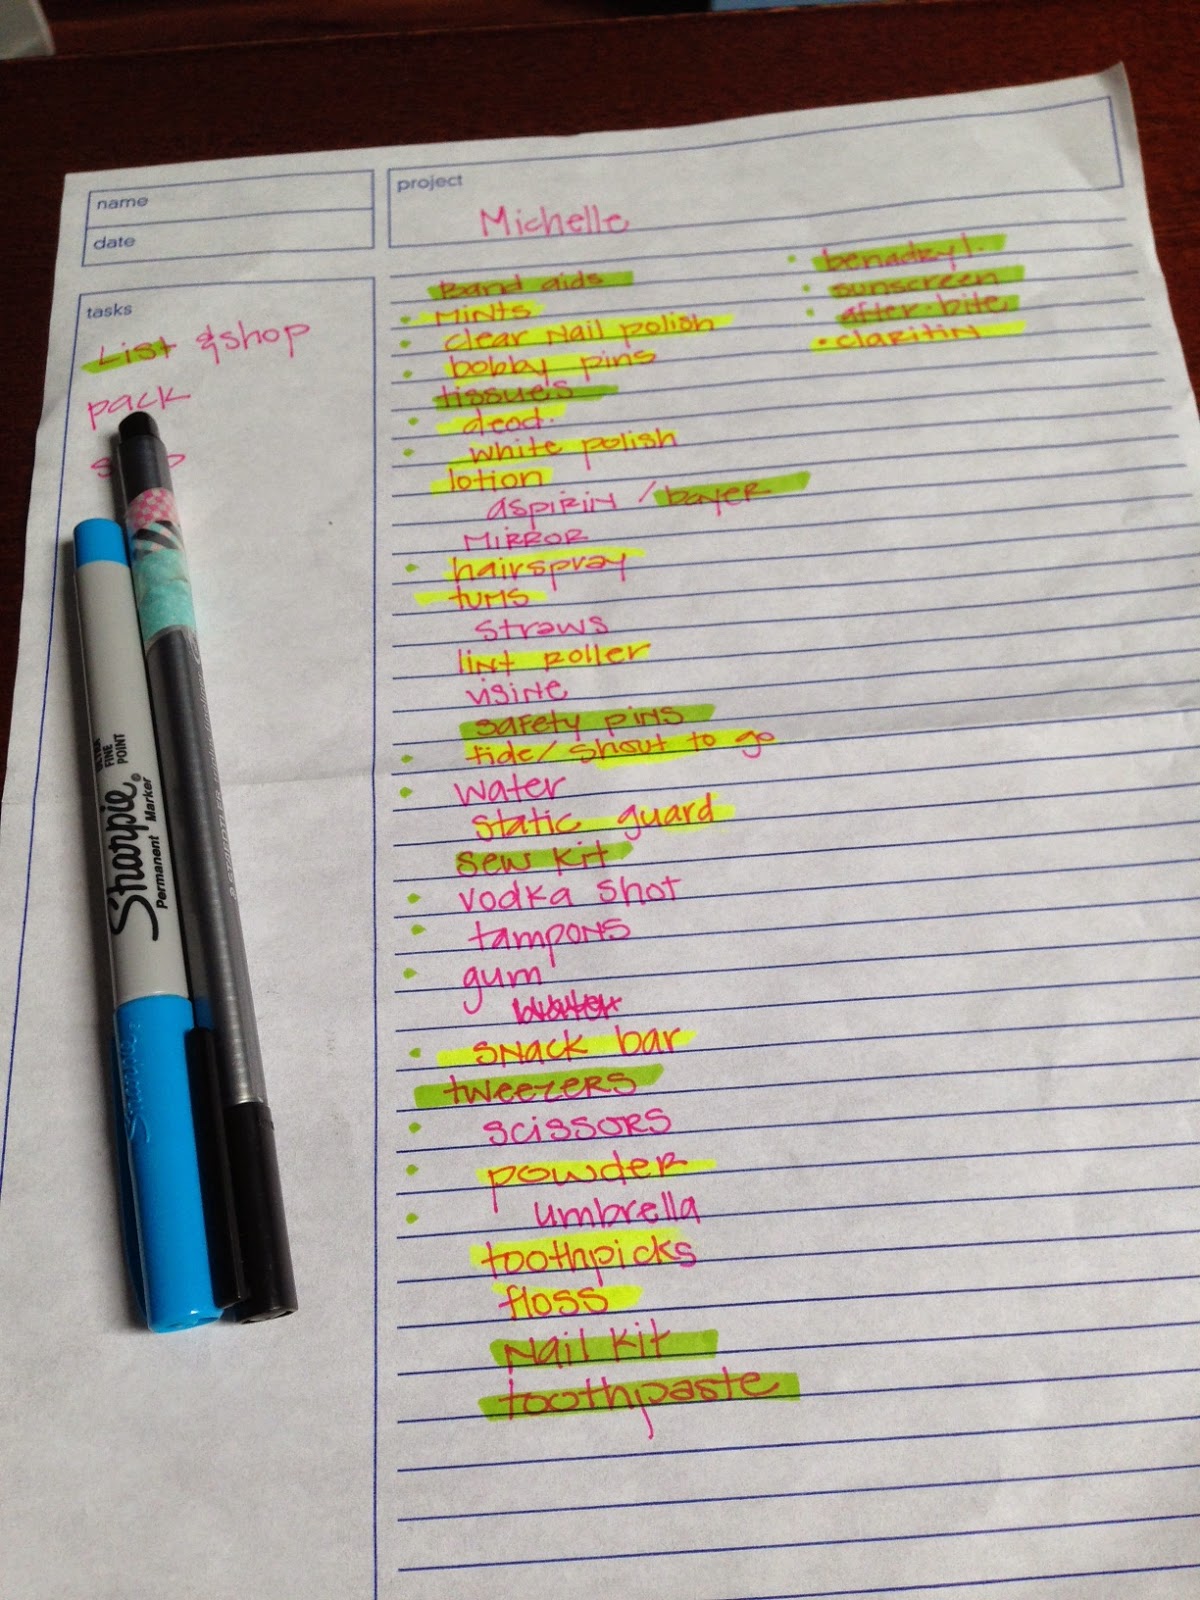 name
date
project
Michelle
tasks
List & shop
pack
Band aids
• Mints
• clear Nail polish
• bobby pins
tissues
• deod.
• white polish
lotion
aspirin / bayer
Mirror
• hairspray
tums
straws
lint roller
visine
safety pins
• tide/shout to go
• water
static guard
sew kit
• vodka shot
• tampons
• gum
water
• snack bar
tweezers
• scissors
• powder
• umbrella
toothpicks
floss
Nail kit
toothpaste
• benadryl.
• sunscreen
• after-bite
• claritin
Sharpie®
Permanent Marker
ULTRA FINE POINT
Sharpie